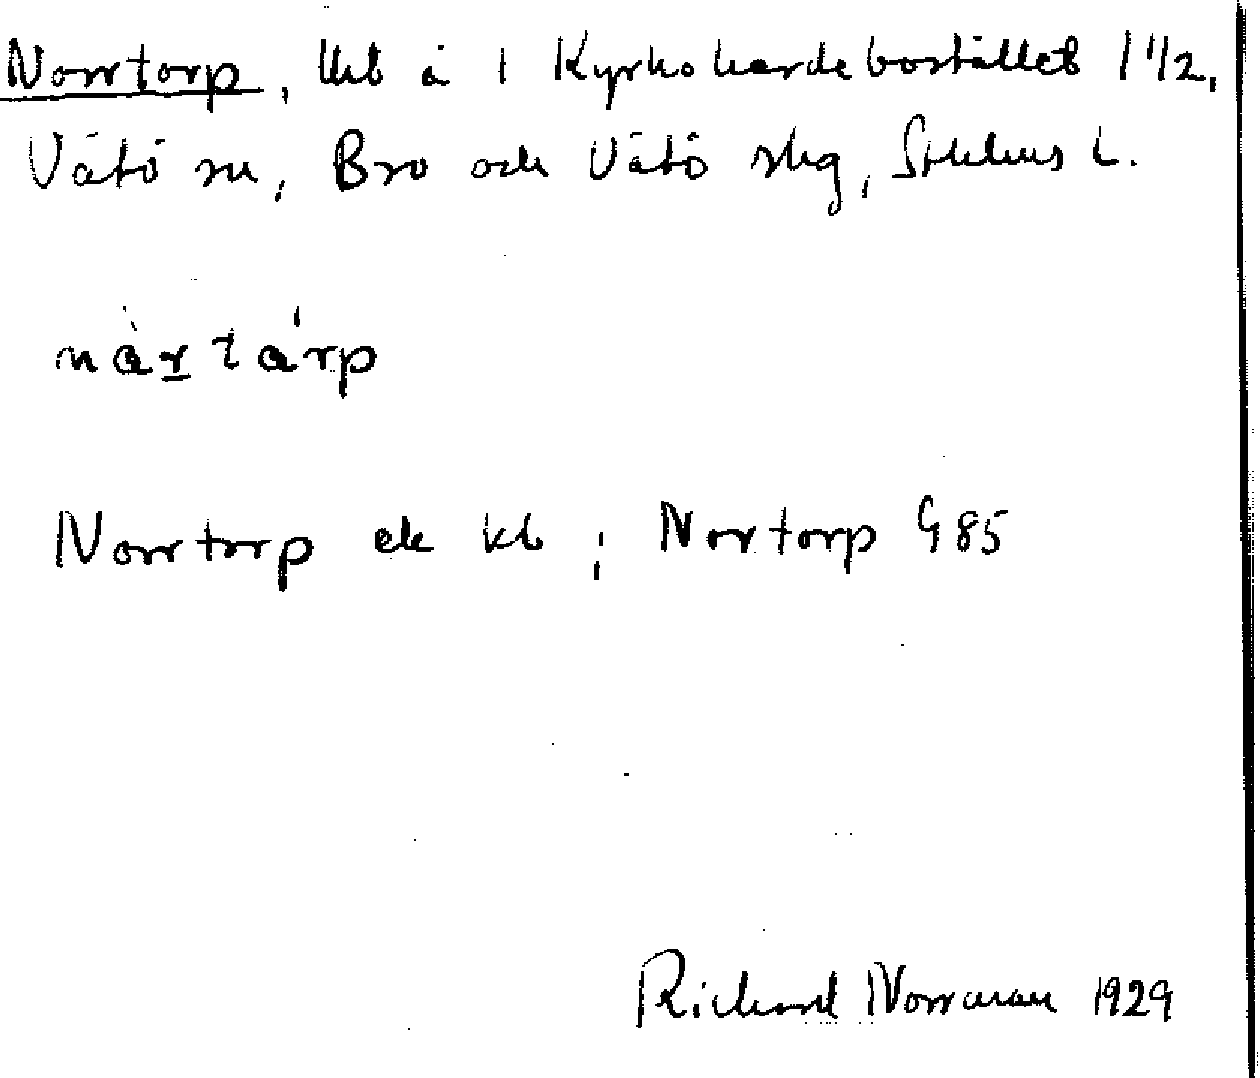 Norrtorp, lht å 1 Kyrkoherdebostället 1 1/2,
Vätö sn, Bro och Vätö skg, Sthlms L.
nàrtárp
Norrtorp ek kb; Nortorp G85
Richard Norrman 1929